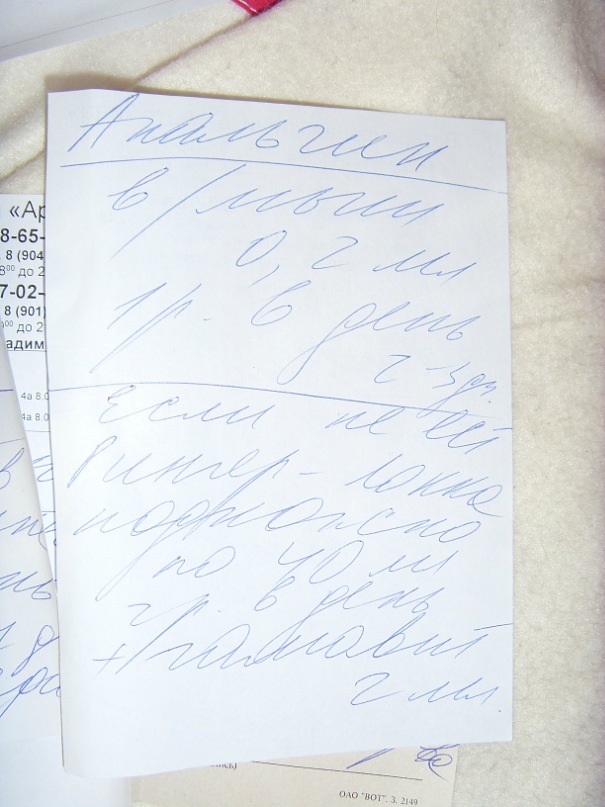 Анальгин
в/мыш
0,2 мл
1 р. в день
2-3 дн.
Если не ест
Рингер-Локка
подкожно
по 40 мл
2 р. в день
+/гамавит
2 мл.
«Ар
8-65-
8 (904
00 до 2
7-02-
8 (901)
00 до 2
адим
4а 8.0
4а 8.0
ОАО "ВОТ". З. 2149